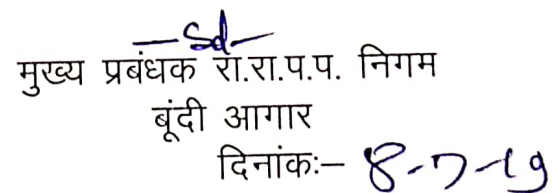 —Sd—
मुख्य प्रबंधक रा.रा.प.प. निगम
बूंदी आगार
दिनांकः– 8-7-19